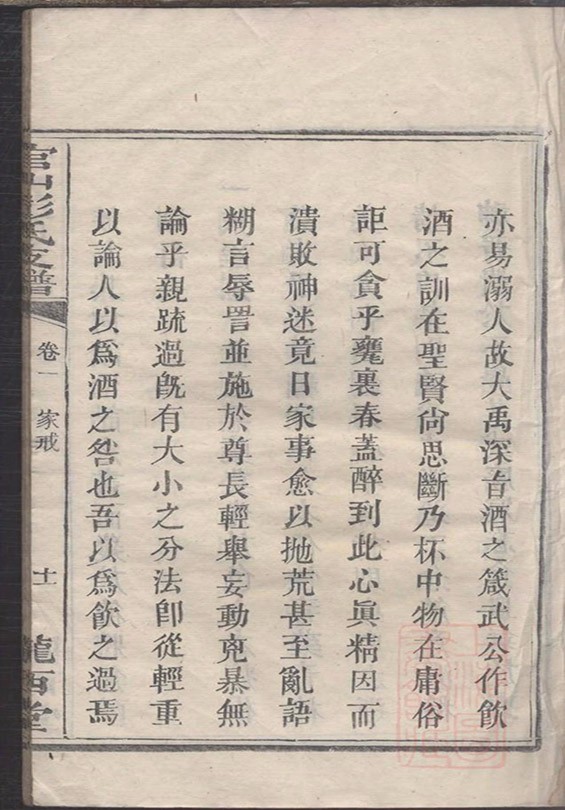 亦易溺人故大禹深旨酒之箴武公作飲
酒之訓在聖賢尙思斷乃杯中物在庸俗
詎可貪乎甕裏春蓋醉到此心眞精因而
潰敗神迷竟日家事愈以拋荒甚至亂語
糊言辱詈並施於尊長輕舉妄動兇暴無
論乎親疏過旣有大小之分法卽從輕重
以論人以爲酒之咎也吾以爲飮之過焉
官山彭氏支譜
卷一 家戒
十一
隴西堂